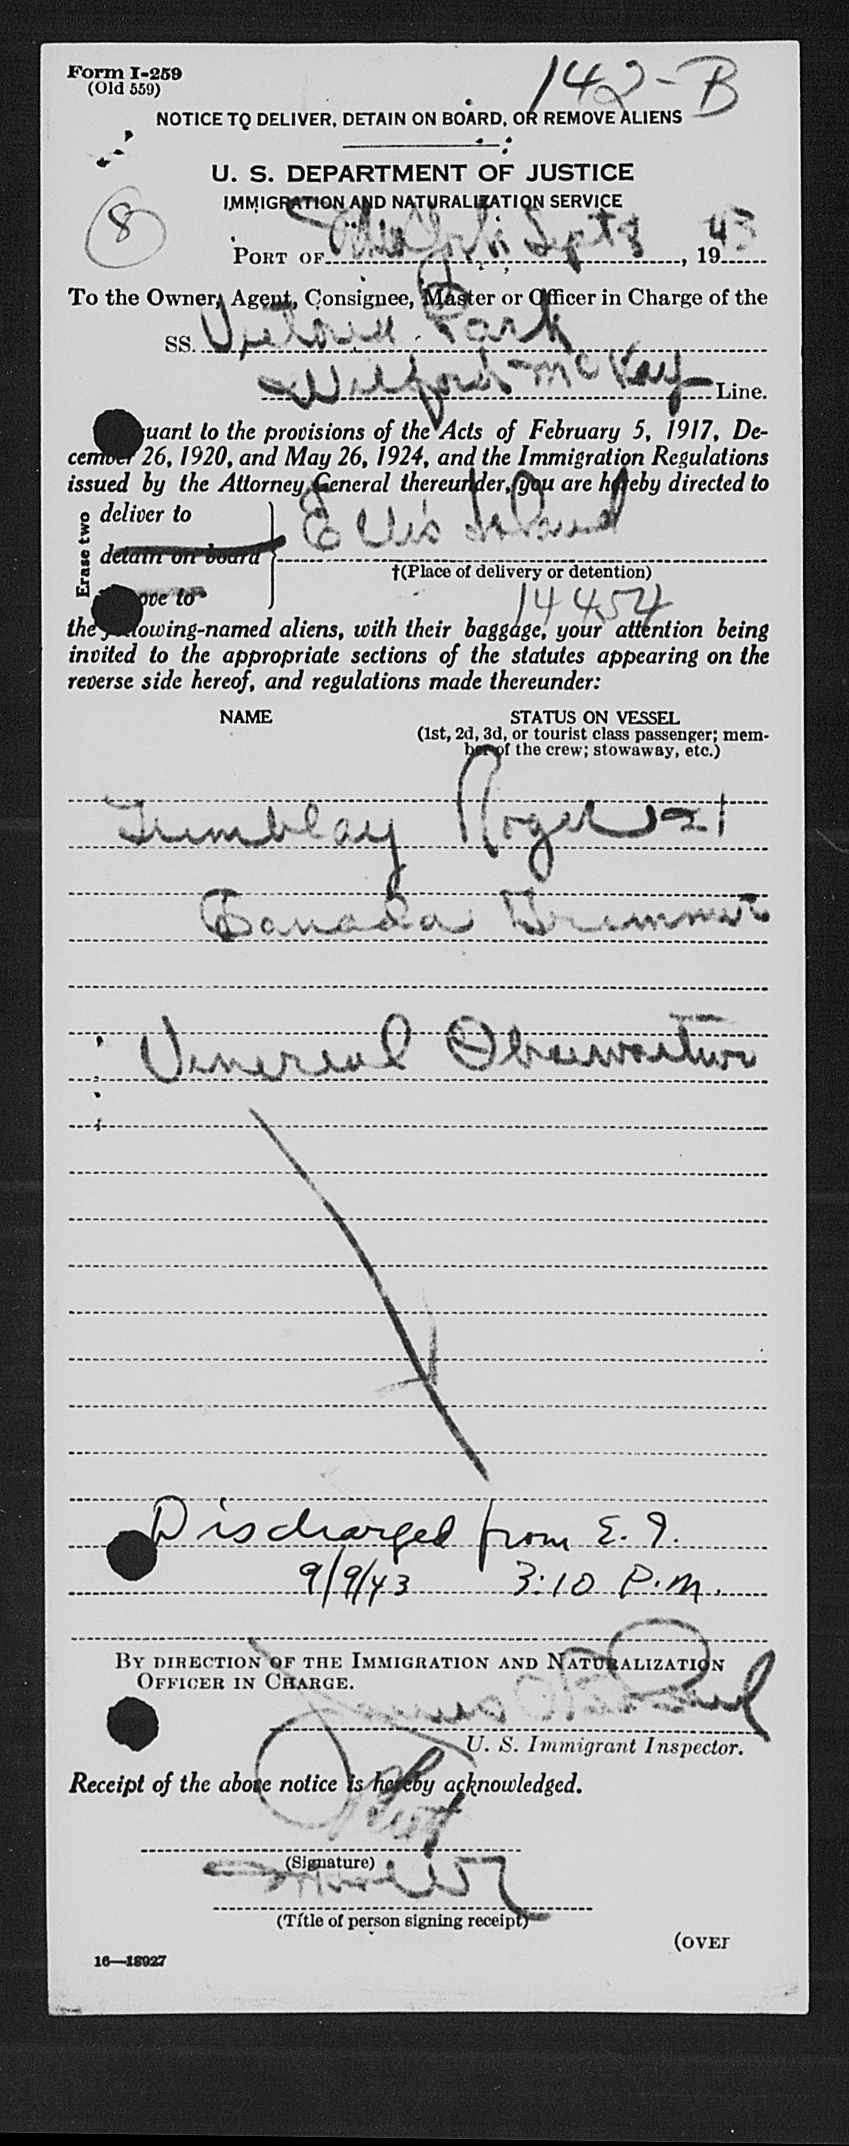 Form I-259
(Old 559)
142-B
NOTICE TO DELIVER, DETAIN ON BOARD, OR REMOVE ALIENS
U. S. DEPARTMENT OF JUSTICE
IMMIGRATION AND NATURALIZATION SERVICE
8
PORT OF New York Sept 8, 1943
To the Owner, Agent, Consignee, Master or Officer in Charge of the
SS. Victoria Park
Wilford McKay Line.
suant to the provisions of the Acts of February 5, 1917, De-
cember 26, 1920, and May 26, 1924, and the Immigration Regulations
issued by the Attorney General thereunder, you are hereby directed to
Erase two
deliver to
detain on board
Ellis Island
†(Place of delivery or detention)
ove to
14454
the following-named aliens, with their baggage, your attention being
invited to the appropriate sections of the statutes appearing on the
reverse side hereof, and regulations made thereunder:
NAME
STATUS ON VESSEL
(1st, 2d, 3d, or tourist class passenger; mem-
ber of the crew; stowaway, etc.)
Tremblay Roger 21
Canada
Venereal Observation
Discharged from E. I.
9/9/43 3:10 P.M.
BY DIRECTION OF THE IMMIGRATION AND NATURALIZATION
OFFICER IN CHARGE.
James
U. S. Immigrant Inspector.
Receipt of the above notice is hereby acknowledged.
(Signature)
(Title of person signing receipt)
(OVER
16—18927